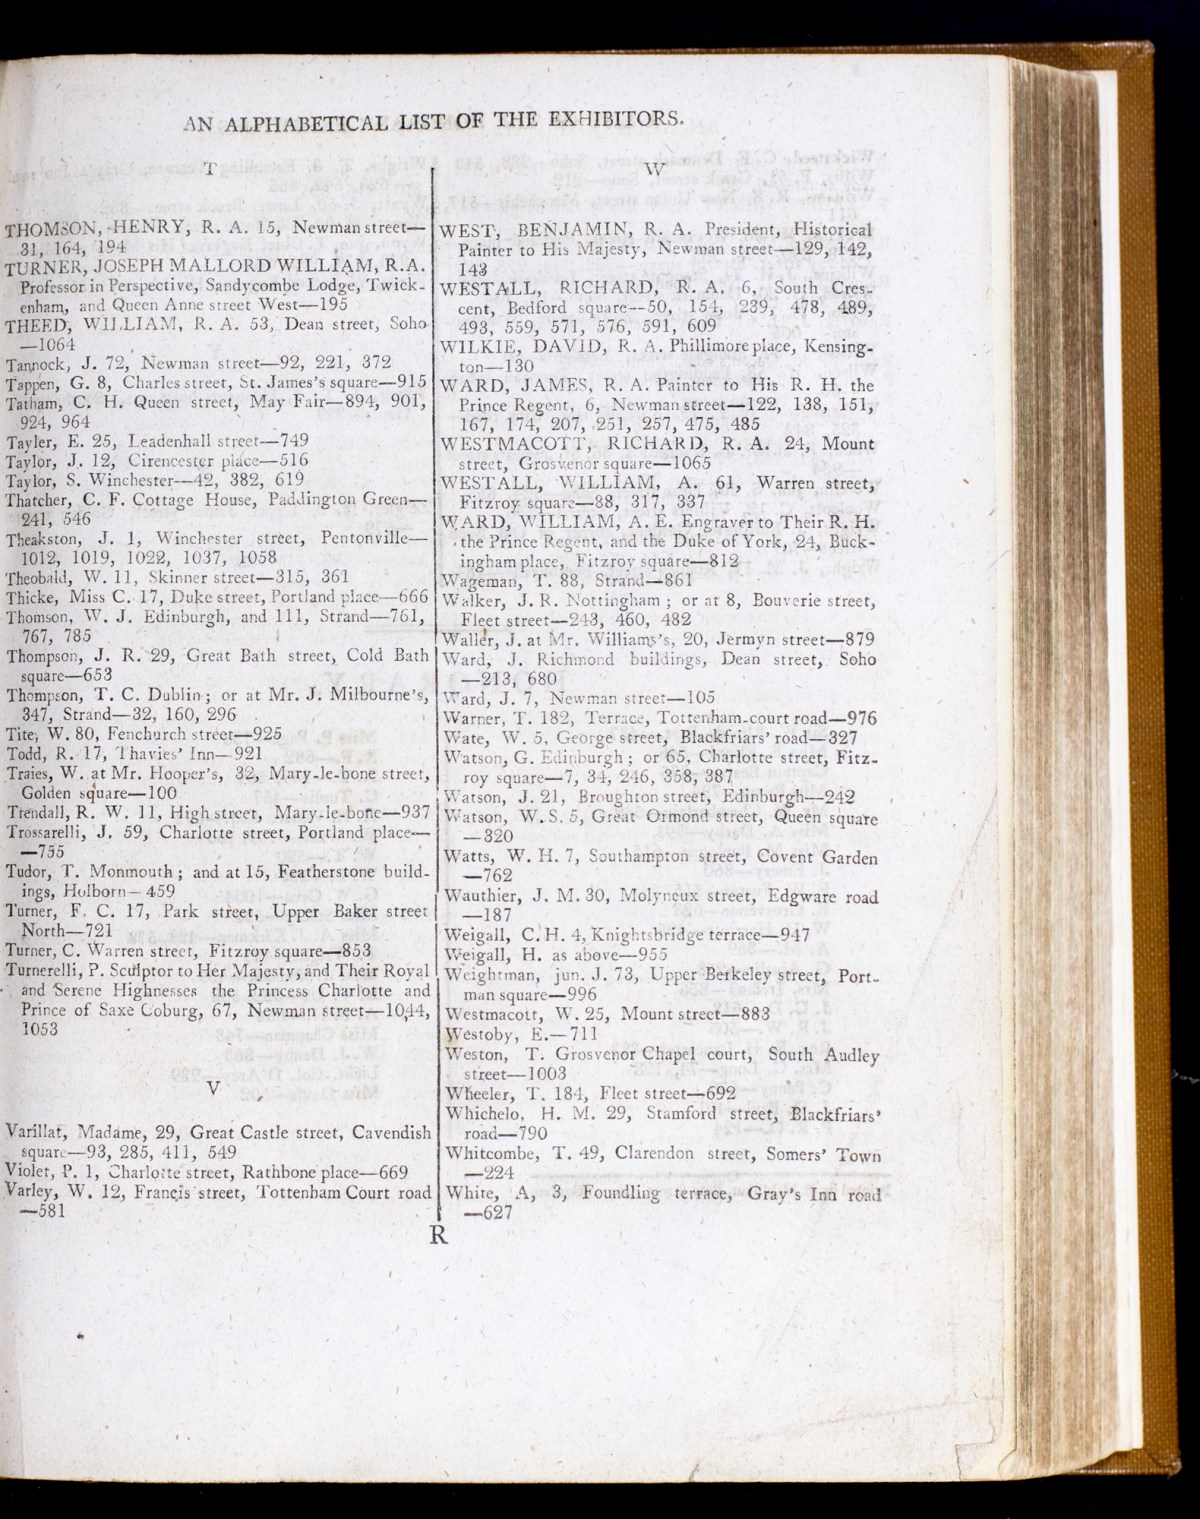 AN ALPHABETICAL LIST OF THE EXHIBITORS.
T
THOMSON, HENRY, R. A. 15, Newman street—
31, 164, 194
TURNER, JOSEPH MALLORD WILLIAM, R.A.
Professor in Perspective, Sandycombe Lodge, Twick-
enham, and Queen Anne street West—195
THEED, WILLIAM, R. A. 53, Dean street, Soho
—1064
Tannock, J. 72, Newman street—92, 221, 372
Tappen, G. 8, Charles street, St. James's square—915
Tatham, C. H. Queen street, May Fair—894, 901,
924, 964
Tayler, E. 25, Leadenhall street—749
Taylor, J. 12, Cirencester place—516
Taylor, S. Winchester—42, 382, 619
Thatcher, C. F. Cottage House, Paddington Green—
241, 546
Theakston, J. 1, Winchester street, Pentonville—
1012, 1019, 1022, 1037, 1058
Theobald, W. 11, Skinner street—315, 361
Thicke, Miss C. 17, Duke street, Portland place—666
Thomson, W. J. Edinburgh, and 111, Strand—761,
767, 785
Thompson, J. R. 29, Great Bath street, Cold Bath
square—653
Thompson, T. C. Dublin; or at Mr. J. Milbourne's,
347, Strand—32, 160, 296
Tite, W. 80, Fenchurch street—925
Todd, R. 17, Thavies' Inn—921
Traies, W. at Mr. Hooper's, 32, Mary-le-bone street,
Golden square—100
Trendall, R. W. 11, High street, Mary-le-bone—937
Trossarelli, J. 59, Charlotte street, Portland place—
—755
Tudor, T. Monmouth; and at 15, Featherstone build-
ings, Holborn—459
Turner, F. C. 17, Park street, Upper Baker street
North—721
Turner, C. Warren street, Fitzroy square—853
Turnerelli, P. Sculptor to Her Majesty, and Their Royal
and Serene Highnesses the Princess Charlotte and
Prince of Saxe Coburg, 67, Newman street—1044,
1053
V
Varillat, Madame, 29, Great Castle street, Cavendish
square—93, 285, 411, 549
Violet, P. 1, Charlotte street, Rathbone place—669
Varley, W. 12, Francis street, Tottenham Court road
—581
W
WEST, BENJAMIN, R. A. President, Historical
Painter to His Majesty, Newman street—129, 142,
143
WESTALL, RICHARD, R. A. 6, South Cres-
cent, Bedford square—50, 154, 239, 478, 489,
493, 559, 571, 576, 591, 609
WILKIE, DAVID, R. A. Phillimore place, Kensing-
ton—130
WARD, JAMES, R. A. Painter to His R. H. the
Prince Regent, 6, Newman street—122, 138, 151,
167, 174, 207, 251, 257, 475, 485
WESTMACOTT, RICHARD, R. A. 24, Mount
street, Grosvenor square—1065
WESTALL, WILLIAM, A. 61, Warren street,
Fitzroy square—88, 317, 337
WARD, WILLIAM, A. E. Engraver to Their R. H.
the Prince Regent, and the Duke of York, 24, Buck-
ingham place, Fitzroy square—812
Wageman, T. 88, Strand—861
Walker, J. R. Nottingham; or at 8, Bouverie street,
Fleet street—243, 460, 482
Waller, J. at Mr. Williams's, 20, Jermyn street—879
Ward, J. Richmond buildings, Dean street, Soho
—213, 680
Ward, J. 7, Newman street—105
Warner, T. 182, Terrace, Tottenham-court road—976
Wate, W. 5, George street, Blackfriars' road—327
Watson, G. Edinburgh; or 65, Charlotte street, Fitz-
roy square—7, 34, 246, 358, 387
Watson, J. 21, Broughton street, Edinburgh—242
Watson, W. S. 5, Great Ormond street, Queen square
—320
Watts, W. H. 7, Southampton street, Covent Garden
—762
Wauthier, J. M. 30, Molyneux street, Edgware road
—187
Weigall, C. H. 4, Knightsbridge terrace—947
Weigall, H. as above—955
Weightman, jun. J. 73, Upper Berkeley street, Port-
man square—996
Westmacott, W. 25, Mount street—883
Westoby, E.—711
Weston, T. Grosvenor Chapel court, South Audley
street—1003
Wheeler, T. 184, Fleet street—692
Whichelo, H. M. 29, Stamford street, Blackfriars'
road—790
Whitcombe, T. 49, Clarendon street, Somers' Town
—224
White, A, 3, Foundling terrace, Gray's Inn road
—627
R